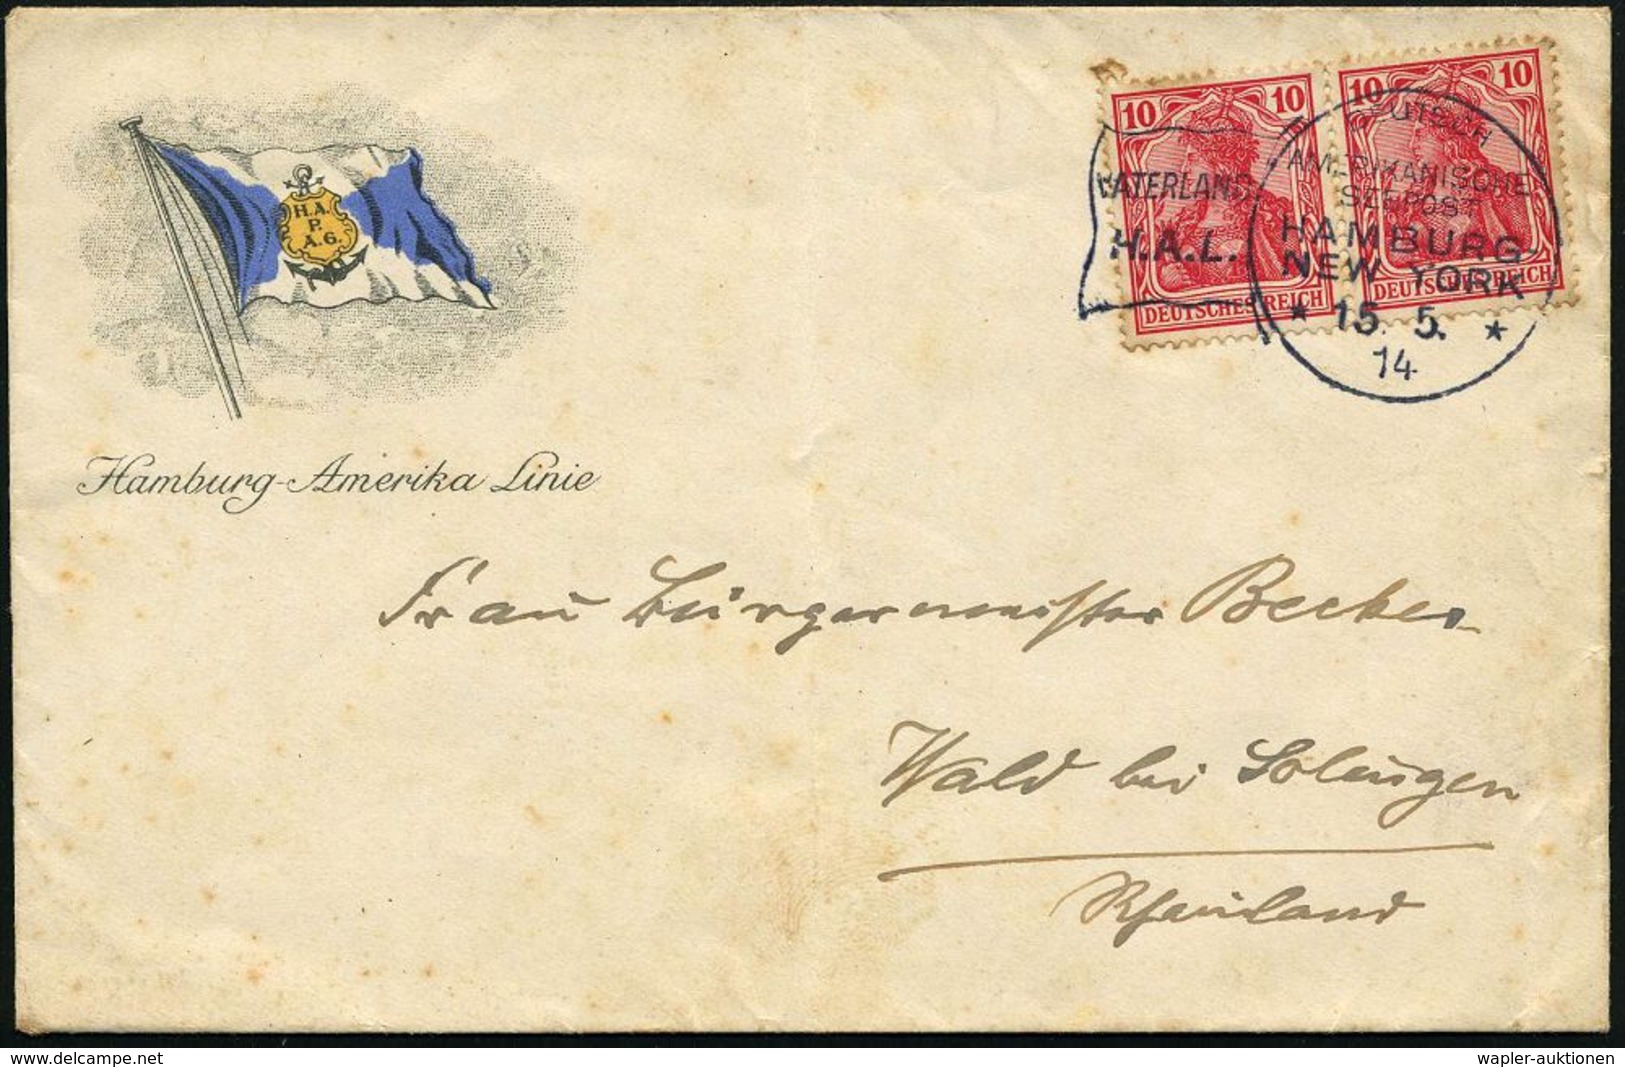 H.A.
P.
A.G.
Hamburg-Amerika Linie
10 10
DEUTSCHES REICH
10 10
DEUTSCHES REICH
VATERLAND
H.A.L.
DEUTSCH
AMERIKANISCHE
SEEPOST
HAMBURG-
NEW YORK
* 15. 5. *
14
Frau Bürgermeister Becker
Wald bei Solingen
Rheinland
www.delcampe.net
wapler-auktionen